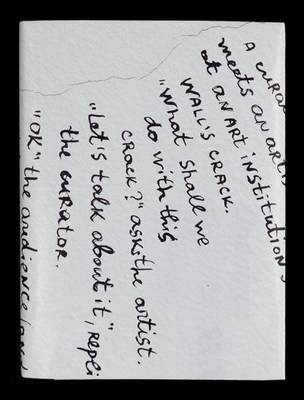 A CURA
meets AN ARTIS
at AN ART INSTITUTION'S
WALL'S CRACK.
"What shall we
do with this
CRACK?" asks the artist.
"Let's talk about it", repli
the curator.
"OK" the audience